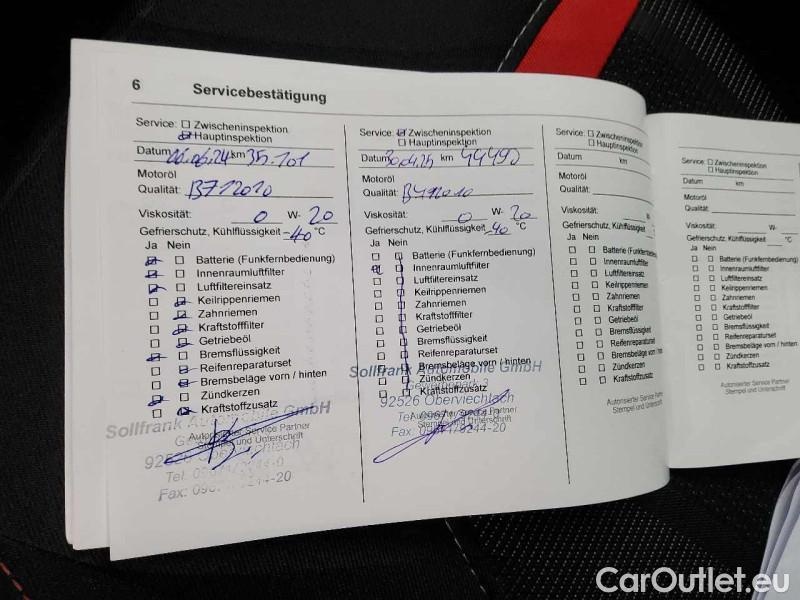 6 Servicebestätigung
Service: Zwischeninspektion
Hauptinspektion
Datum 06.06.24 km 35.101
Motoröl
Qualität: B712010
Viskosität: 0 W- 20
Gefrierschutz, Kühlflüssigkeit -40 °C
Ja Nein
Batterie (Funkfernbedienung)
Innenraumluftfilter
Luftfiltereinsatz
Keilrippenriemen
Zahnriemen
Kraftstofffilter
Getriebeöl
Bremsflüssigkeit
Reifenreparaturset
Bremsbeläge vorn / hinten
Zündkerzen
Kraftstoffzusatz
Sollfrank Automobile GmbH
Autorisierter Service Partner
Stempel und Unterschrift
92526 Oberviechtach
Tel: 09671/9244-0
Fax: 09671/9244-20
Service: Zwischeninspektion
Hauptinspektion
Datum 30.04.25 km 44490
Motoröl
Qualität:
Viskosität: 0 W- 20
Gefrierschutz, Kühlflüssigkeit -40 °C
Ja Nein
Batterie (Funkfernbedienung)
Innenraumluftfilter
Luftfiltereinsatz
Keilrippenriemen
Zahnriemen
Kraftstofffilter
Getriebeöl
Bremsflüssigkeit
Reifenreparaturset
Bremsbeläge vorn / hinten
Zündkerzen
Kraftstoffzusatz
Sollfrank Automobile GmbH
92526 Oberviechtach
Autorisierter Service Partner
Stempel und Unterschrift
Tel: 09671/9244-0
Fax: 09671/9244-20
Service: Zwischeninspektion
Hauptinspektion
Datum km
Motoröl
Qualität:
Viskosität: W-
Gefrierschutz, Kühlflüssigkeit °C
Ja Nein
Batterie (Funkfernbedienung)
Innenraumluftfilter
Luftfiltereinsatz
Keilrippenriemen
Zahnriemen
Kraftstofffilter
Getriebeöl
Bremsflüssigkeit
Reifenreparaturset
Bremsbeläge vorn / hinten
Zündkerzen
Kraftstoffzusatz
Autorisierter Service Partner
Stempel und Unterschrift
Service: Zwischeninspektion
Hauptinspektion
Datum km
Motoröl
Qualität:
Viskosität: W-
Gefrierschutz, Kühlflüssigkeit
Ja Nein
Batterie (Funkfernbedienung)
Innenraumluftfilter
Luftfiltereinsatz
Keilrippenriemen
Zahnriemen
Kraftstofffilter
Getriebeöl
Bremsflüssigkeit
Reifenreparaturset
Bremsbeläge vorn / hinten
Zündkerzen
Kraftstoffzusatz
Autorisierter Service Partner
Stempel und Unterschrift
CarOutlet.eu